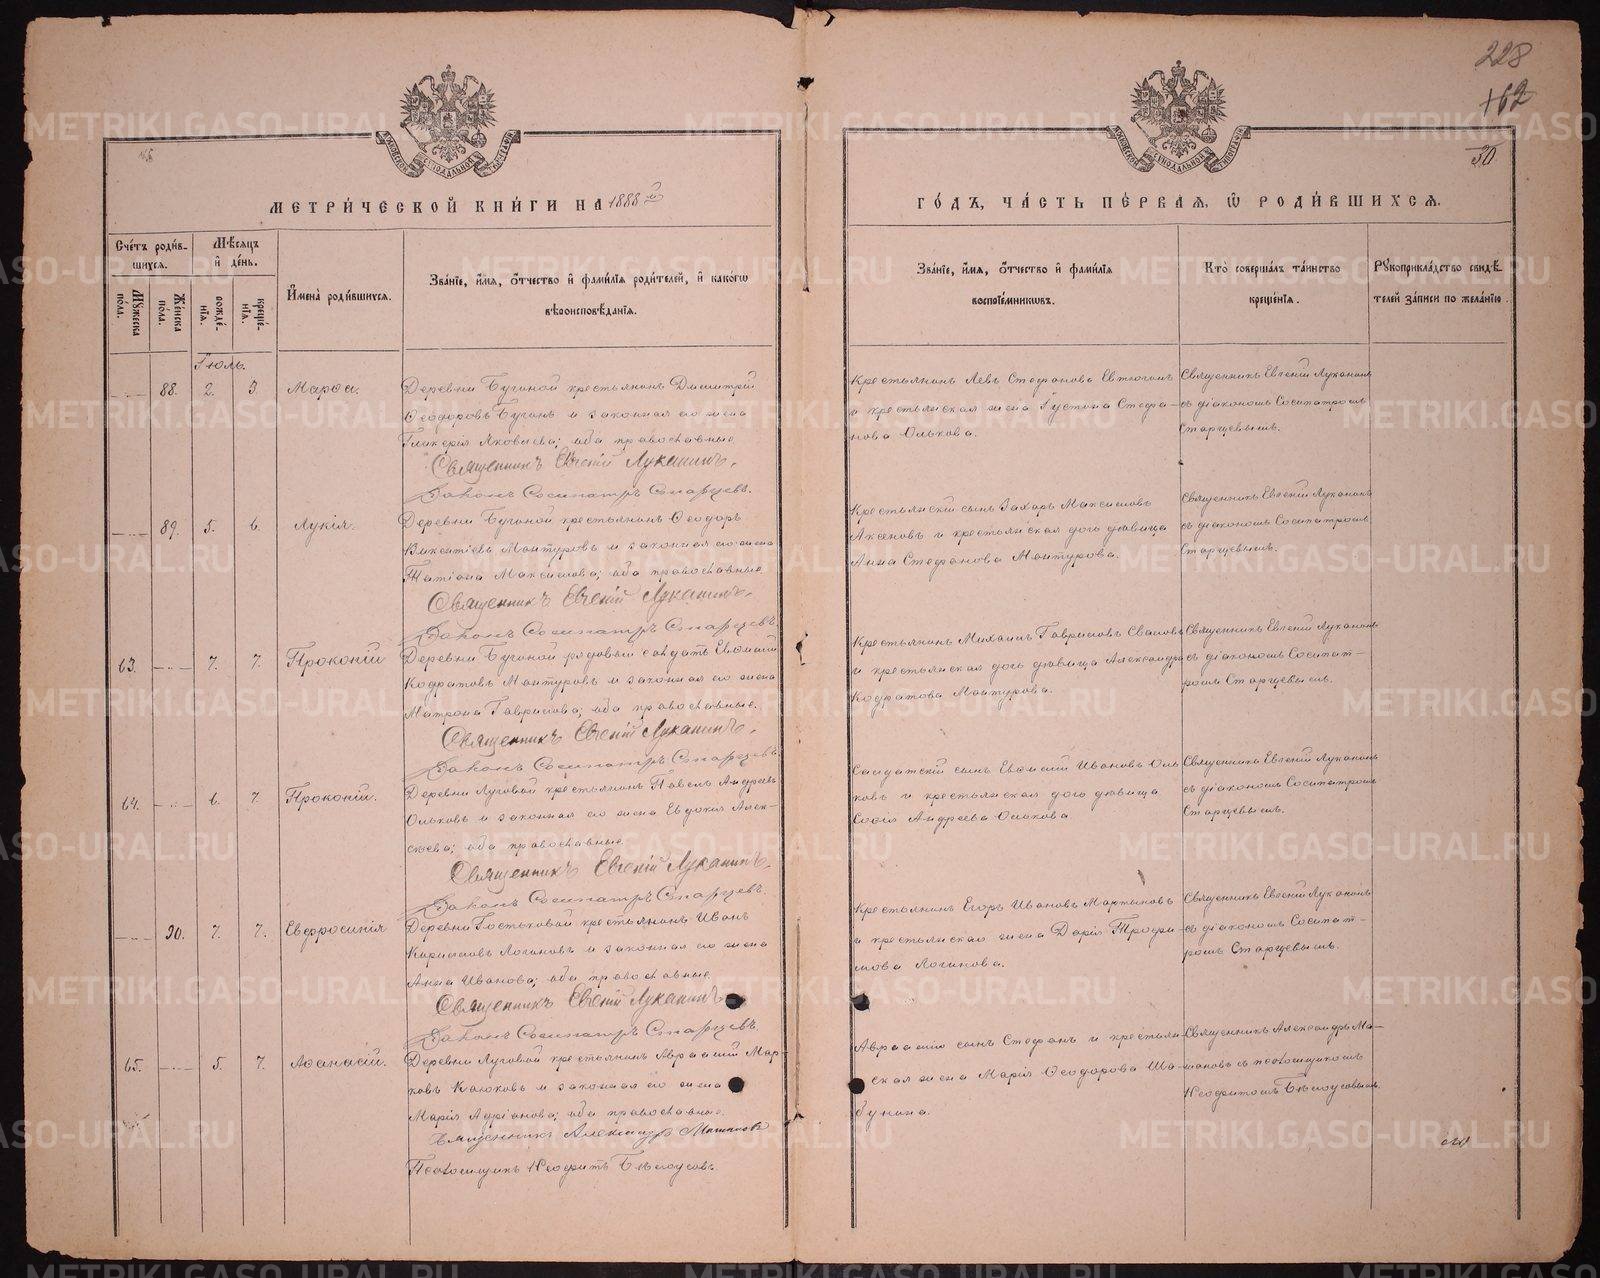 228
162
30
МЕТРИ́ЧЕСКОЙ КНИ́ГИ НА 1888 й
ГО́ДЪ, ЧА́СТЬ ПЕ́РВАЯ, Ѡ РОДИ́ВШИХСЯ.
Сче́тъ роди́в-
шихся.
Мꙋжеска по́ла.
Же́нска по́ла.
Мѣ́сяцъ
и де́нь.
рожде́-
нія.
креще́-
нія.
Имена̀ роди́вшихся.
Зва́ніе, и́мя, о́тчество и фами́лія роди́телей, и како́гѡ
вѣроисповѣ́данія.
Зва́ніе, и́мя, о́тчество и фами́лія
воспріе́мниковъ.
Кто̀ соверша́лъ та́инство
креще́нія.
Рꙋкоприкла́дство свидѣ́-
телей за́писи по жела́нію.
Іюль.
88. 2. 3. Марѳа.
Деревни Бугиной крестьянинъ Димитрій
Ѳеодоровъ Бугинъ и законная его жена
Гликерія Яковлева; оба православные.
Священникъ Евгеній Луканинъ.
Діаконъ Сосипатръ Старцевъ.
Крестьянинъ Левъ Стефановъ Евтюгинъ
и крестьянская жена Іустина Стефа-
нова Олькова.
Священникъ Евгеній Луканинъ
съ діакономъ Сосипатромъ
Старцевымъ.
89. 5. 6. Лукія.
Деревни Бугиной крестьянинъ Ѳеодоръ
Мантуровъ и законная его жена
Татіана Максимова; оба православные.
Священникъ Евгеній Луканинъ.
Діаконъ Сосипатръ Старцевъ.
Крестьянскій сынъ Захаръ Максимовъ
Аксеновъ и крестьянская дочь дѣвица
Анна Стефанова Мантурова.
Священникъ Евгеній Луканинъ
съ діакономъ Сосипатромъ
Старцевымъ.
63. 7. 7. Прокопій
Деревни Бугиной рядовый солдатъ Евѳимій
Кодратовъ Мантуровъ и законная его жена
Матрона Гаврилова; оба православные.
Священникъ Евгеній Луканинъ.
Діаконъ Сосипатръ Старцевъ.
Крестьянинъ Михаилъ Гавриловъ
и крестьянская дочь дѣвица Александра
Кодратова Мантурова.
Священникъ Евгеній Луканинъ
съ діакономъ Сосипат-
ромъ Старцевымъ.
64. 6. 7. Прокопій.
Деревни Луговой крестьянинъ Павелъ Андреевъ
Ольковъ и законная его жена Евдокія Алек-
сѣева; оба православные.
Священникъ Евгеній Луканинъ.
Діаконъ Сосипатръ Старцевъ.
Солдатскій сынъ Евѳимій Ивановъ Оль
ковъ и крестьянская дочь дѣвица
Софія Андреева Олькова
Священникъ Евгеній Луканинъ
съ діакономъ Сосипатромъ
Старцевымъ.
90. 7. 7. Евфросинія
Деревни Гостьковой крестьянинъ Иванъ
Кирилловъ Логиновъ и законная его жена
Анна Иванова; оба православные.
Священникъ Евгеній Луканинъ
Діаконъ Сосипатръ Старцевъ.
Крестьянинъ Егоръ Ивановъ Мартыновъ
и крестьянская жена Дарія Трофи
мова Логинова.
Священникъ Евгеній Луканинъ
съ діакономъ Сосипат-
ромъ Старцевымъ.
65. 5. 7. Аѳанасій.
Деревни Луговой крестьянинъ Авраамій Мар-
ковъ Каюковъ и законная его жена
Марія Адріанова; оба православные.
Священникъ Александръ
Псаломщикъ Неофитъ Бѣлоусовъ.
Авраамія сынъ Стефанъ и крестьян-
ская жена Марія Ѳеодорова Ша-
бунина.
Священникъ Александръ
съ псаломщикомъ
Неофитомъ Бѣлоусовымъ.
METRIKI.GASO-URAL.RU